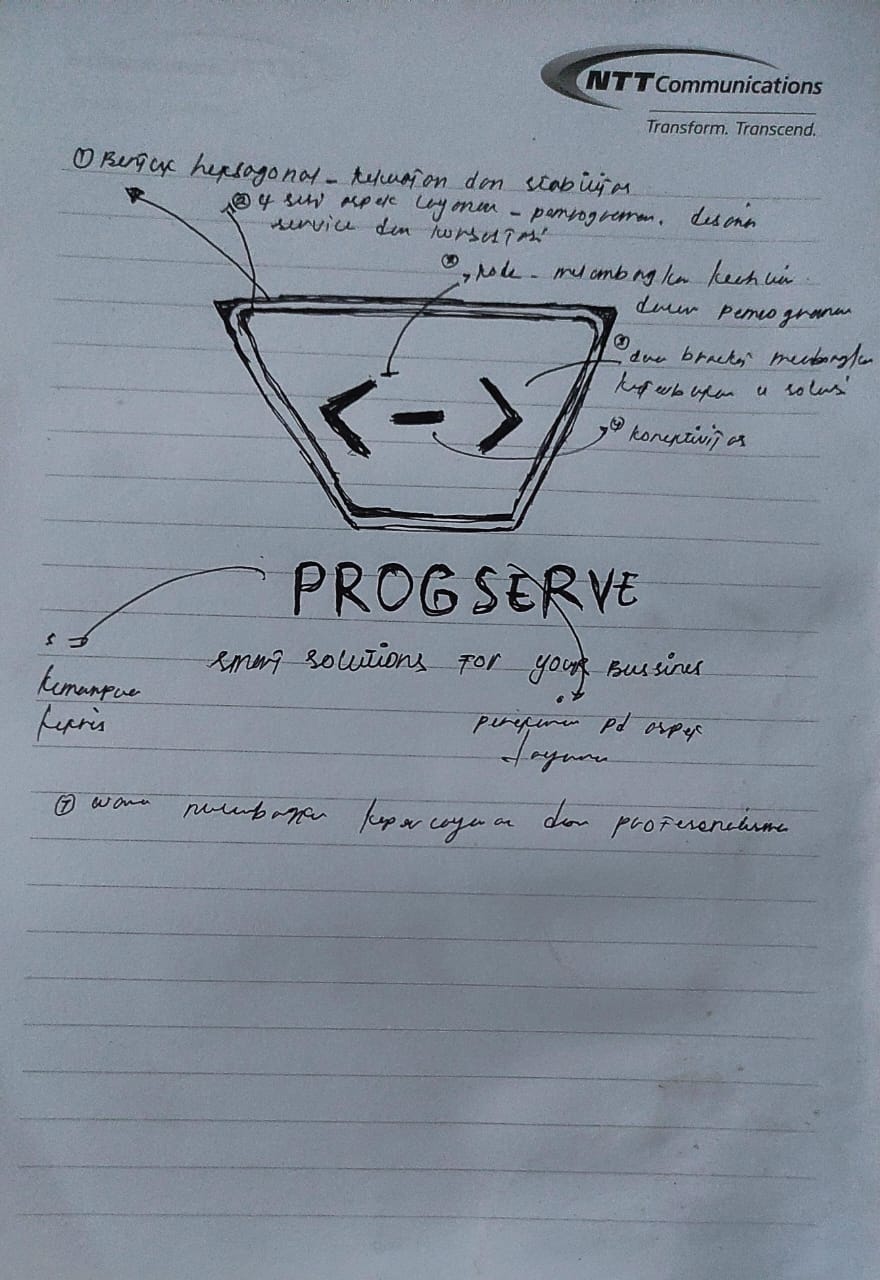 NTT Communications
Transform. Transcend.
① Bentuk heksagonal - kekuatan dan stabilitas
② 4 sisi aspek layanan - pemrograman, desain
service dan konsultasi
③ kode - melambangkan
dalam pemrograman
③ dua bracket
u solusi
< - >
④ konektivitas
PROGSERVE
smart solutions for your Bussines
5
teknis
pd aspek
layanan
⑦ warna kepercayaan dan profesionalisme